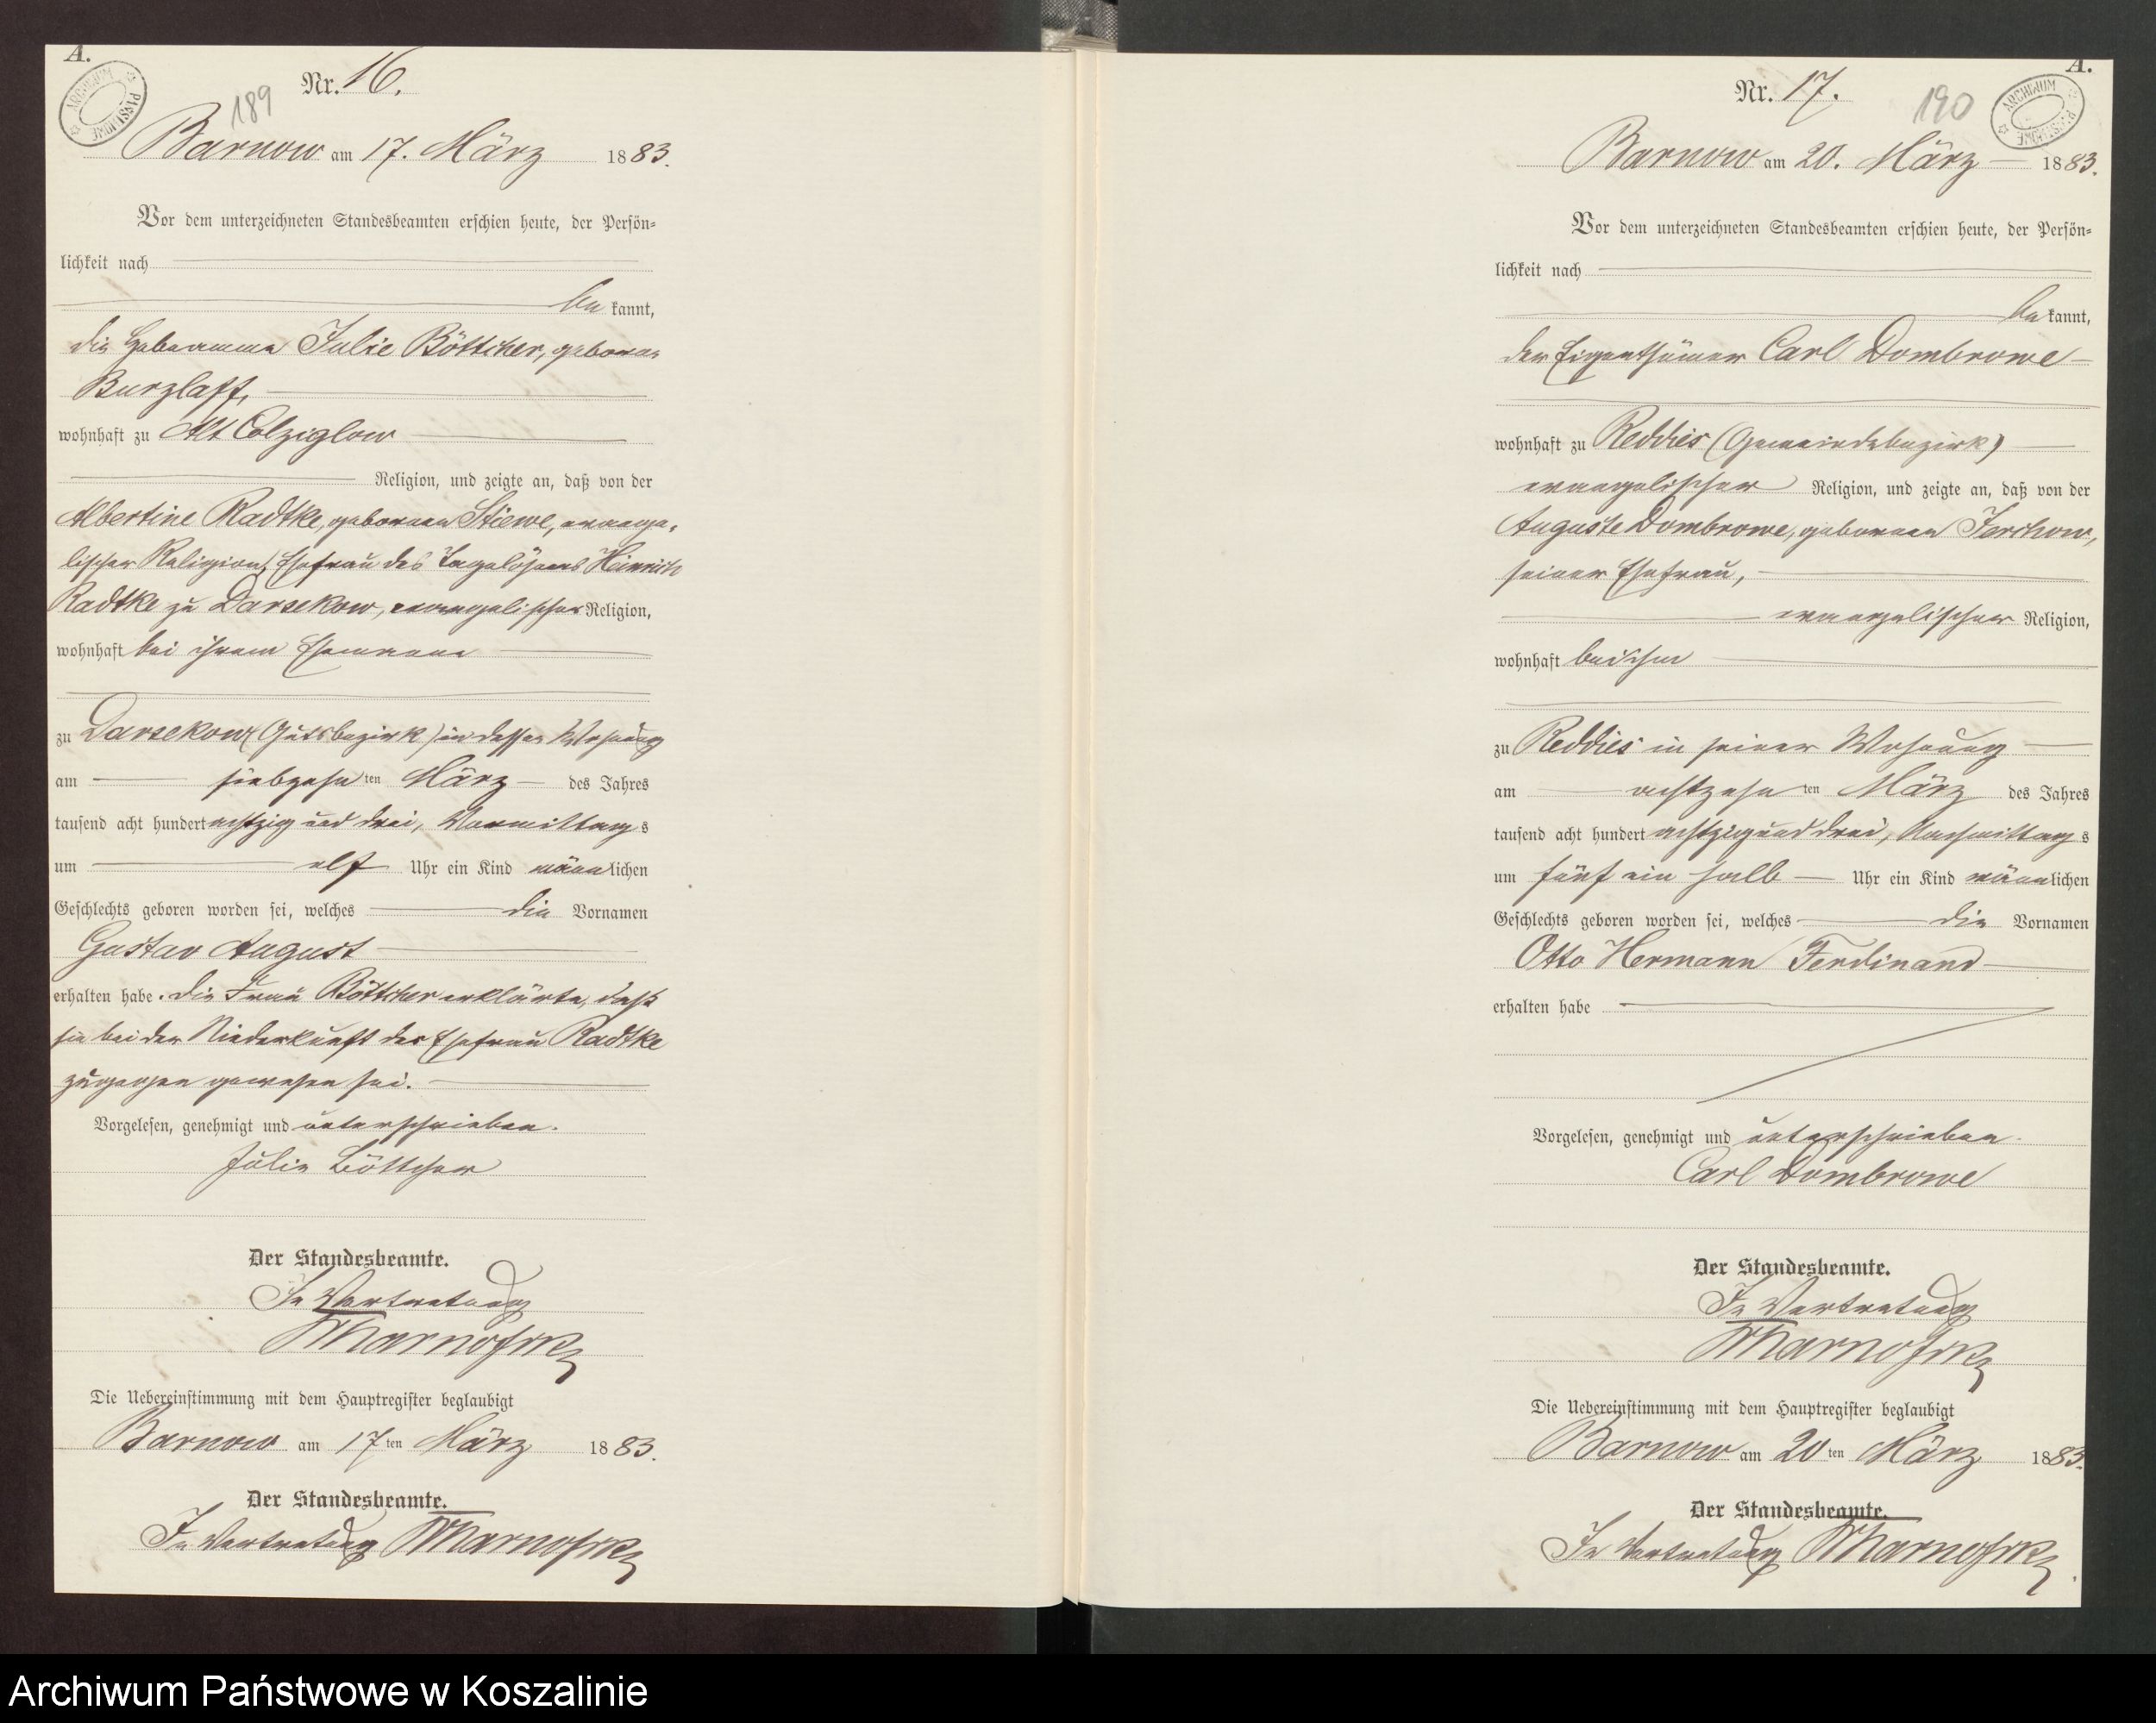 A.
ARCHIWUM PAŃSTWOWE
Nr. 16.
189
Barnow am 17. März 1883.
Vor dem unterzeichneten Standesbeamten erschien heute, der Persön=
lichkeit nach
be kannt,
die Hebeamme Julie Böttcher, geborne
Burzlaff,
wohnhaft zu Alt Colziglow
Religion, und zeigte an, daß von der
Albertine Radtke, gebornen Stiewe, evange-
lischer Religion, Ehefrau des Tagelöhners Heinrich
Radtke zu Darsekow, evangelischer Religion,
wohnhaft bei ihrem Ehemanne
zu Darsekow (Gutsbezirk) in dessen Wohnung
am siebzehn ten März des Jahres
tausend acht hundert achtzig und drei, Vormittags
um elf Uhr ein Kind männlichen
Geschlechts geboren worden sei, welches die Vornamen
Gustav August
erhalten habe. Die Frau Böttcher erklärte, daß
sie bei der Niederkunft der Ehefrau Radtke
zugegen gewesen sei.
Vorgelesen, genehmigt und unterschrieben.
Julie Böttcher
Der Standesbeamte.
In Vertretung
Die Uebereinstimmung mit dem Hauptregister beglaubigt
Barnow am 17ten März 1883.
Der Standesbeamte.
In Vertretung
A.
ARCHIWUM PAŃSTWOWE
Nr. 17.
190
Barnow am 20. März 1883.
Vor dem unterzeichneten Standesbeamten erschien heute, der Persön=
lichkeit nach
be kannt,
der Eigenthümer Carl Dombrowe
wohnhaft zu Reddies (Gemeindebezirk)
evangelischer Religion, und zeigte an, daß von der
Auguste Dombrowe, gebornen Jerchow,
seiner Ehefrau,
evangelischer Religion,
wohnhaft bei ihm
zu Reddies in seiner Wohnung
am achtzehn ten März des Jahres
tausend acht hundert achtzig und drei, Nachmittags
um fünf ein halb Uhr ein Kind männlichen
Geschlechts geboren worden sei, welches die Vornamen
Otto Hermann Ferdinand
erhalten habe
Vorgelesen, genehmigt und unterschrieben.
Carl Dombrowe
Der Standesbeamte.
In Vertretung
Die Uebereinstimmung mit dem Hauptregister beglaubigt
Barnow am 20ten März 1883.
Der Standesbeamte.
In Vertretung
Archiwum Państwowe w Koszalinie